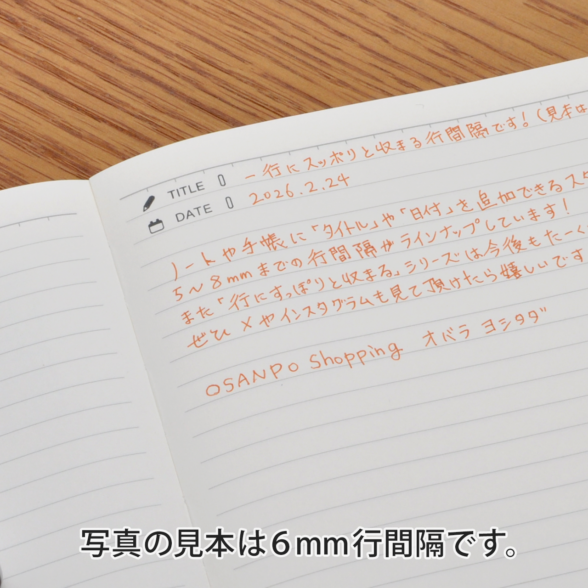 TITLE 一行にスッポリと収まる行間隔です!(見本は
DATE 2026.2.24
ノートや手帳に「タイトル」や「日付」を追加できるスタ
5〜8mmまでの行間隔をラインナップしています!
また「行にすっぽりと収まる」シリーズは今後もたーくさ
ぜひ Xやインスタグラムも見て頂けたら嬉しいです
OSANPO Shopping オバラ ヨシタダ
写真の見本は6mm行間隔です。